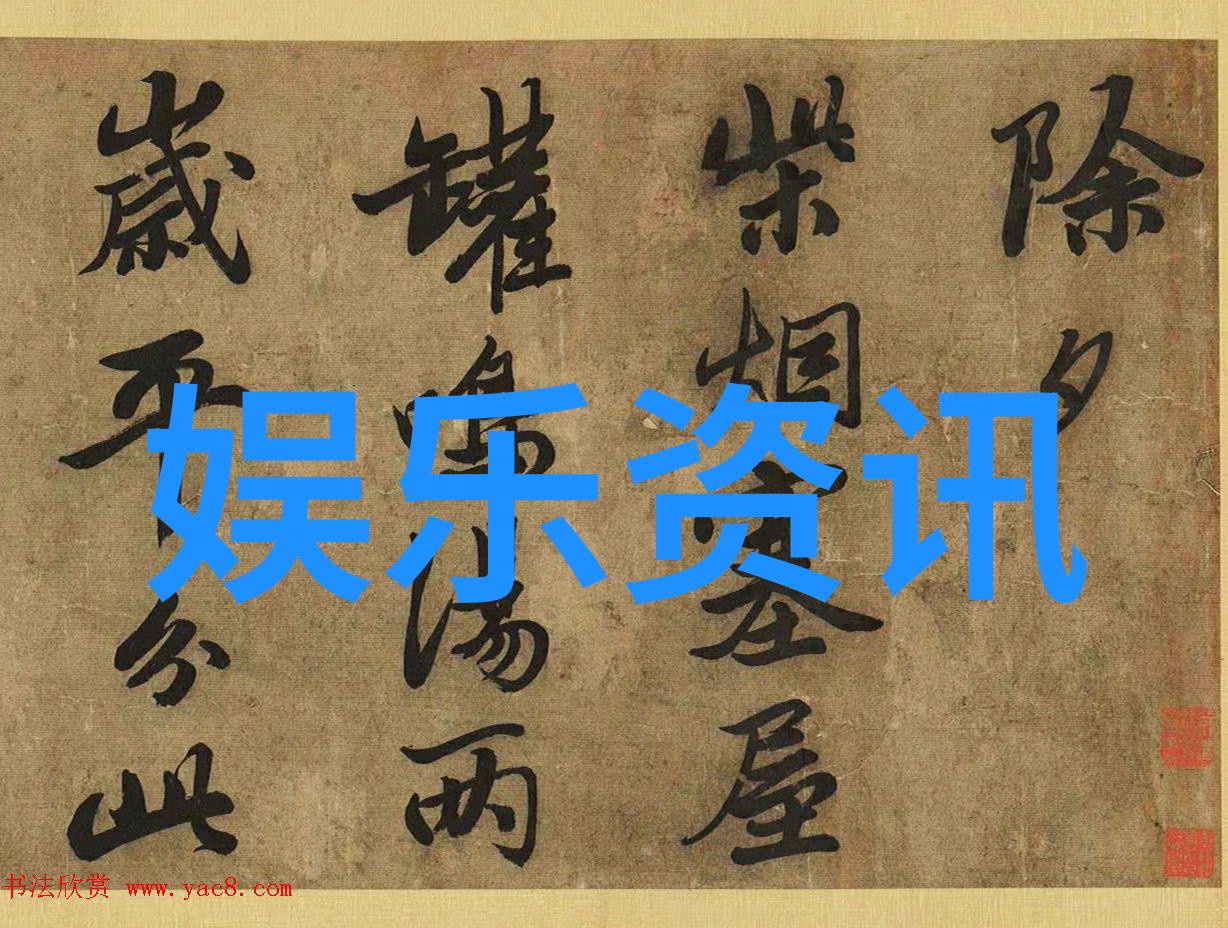 除夕
柴烟塞屋
罐鳴湯两
歲平分此
娱乐资讯
书法欣赏 www.yac8.com